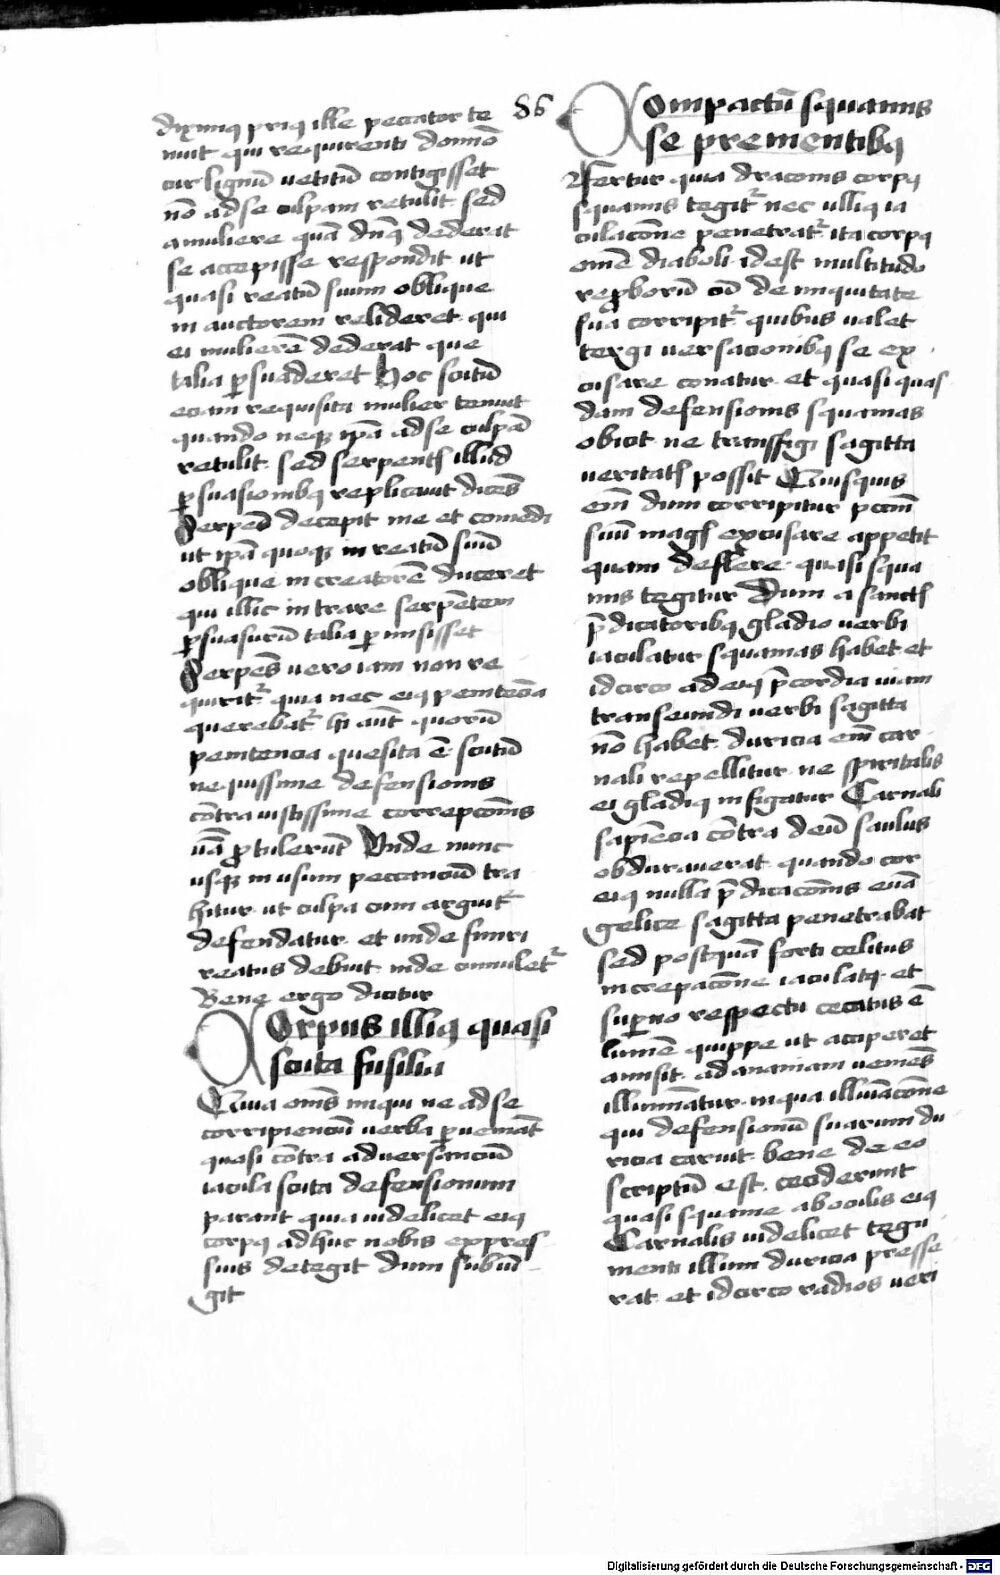 diximus priusq ille peccator te
nuit qui requirenti domīo
cur lignū vetitū contigisset
nō ad se culpam retulit sed
a muliere quā dn̄s dederat
se accepisse respondit ut
quasi reatū suum oblique
in auctorem relideret qui
ei mulierē dederat que
talia ꝑsuaderet Hoc scutū
eciam requisita mulier tenuit
quando neqꝫ ip̄a ad se culpā
retulit sed serpentis illud
ꝑsuasionibꝯ replicauit dicēs
Serpens decepit me et comedi
ut ip̄a quoqꝫ in reatū suū
oblique in creatorē duceret
qui illic intrare serpētem
ꝑsuasurū talia ꝑmisisset
Serpēs vero iam non re
quirit᷑ quia nec eiꝯ penitēcia
querebat᷑ hi aūt quorū
penitencia quesita ē scutū
nequissime defensionis
cōtra iustissime correpcōnis
uā ꝓtulerūt Vnde nunc
usqꝫ in usum peccanciū tra
hitur ut culpa cum arguit᷑
defendatur et unde finiri
reatus debuit inde cumulet᷑
Bene ergo dicitur
Corpus illiꝯ quasi
scuta fusilia
Quia om̄s iniqui ne ad se
corripienciū verba ꝑueniāt
quasi cōtra adversanciū
iacula scuta defensionum
parant quia videlicet eiꝯ
corpꝯ adhuc nobis expres
sius detegit dum subiū
git
86
Compactū squamis
se prementibꝯ
Fertur quia draconis corpꝯ
squamis tegit᷑ nec illiꝯ ia
culacōne penetrat᷑ ita corpꝯ
om̄e diaboli idest multitudo
reꝓborū cū de iniquitate
sua corripit᷑ quibus valet
tergiversacionibꝯ se ex
cusare conatur et quasi quas
dam defensionis squamas
obicit ne transfigi sagitta
veritatis possit Quisquis
em̄ dum corripitur pccm̄
suū magis excusare appetit
quam deflere quasi squa
mis tegitur Dum a sanctis
p̄dicatoribꝯ gladio verbi
iaculatur squamas habet et
idcirco ad eiꝯ p̄cordia viam
transeundi verbi sagitta
nō habet duricia em̄ car
nali repellitur ne spiritalis
ei gladiꝯ infigatur Carnali
sapiēcia cōtra deū saulus
obduraverat quando cor
eiꝯ nulla p̄dicacōnis euā
gelice sagitta penetrabat
sed postquā forti celitus
increpacōne iaculatꝯ et
suꝑno respectu cecatus ē
lumē quippe ut acciperet
amisit ad ananiam veniēs
illuminatur in qua illuīacōne
qui defensionū suarum du
ricia caruit bene de eo
scriptū est ceciderunt
quasi squame ab oculis eiꝯ
Carnalis videlicet tegu
menti illum duricia presse
rat et idcirco radios veri
Digitalisierung gefördert durch die Deutsche Forschungsgemeinschaft - DFG